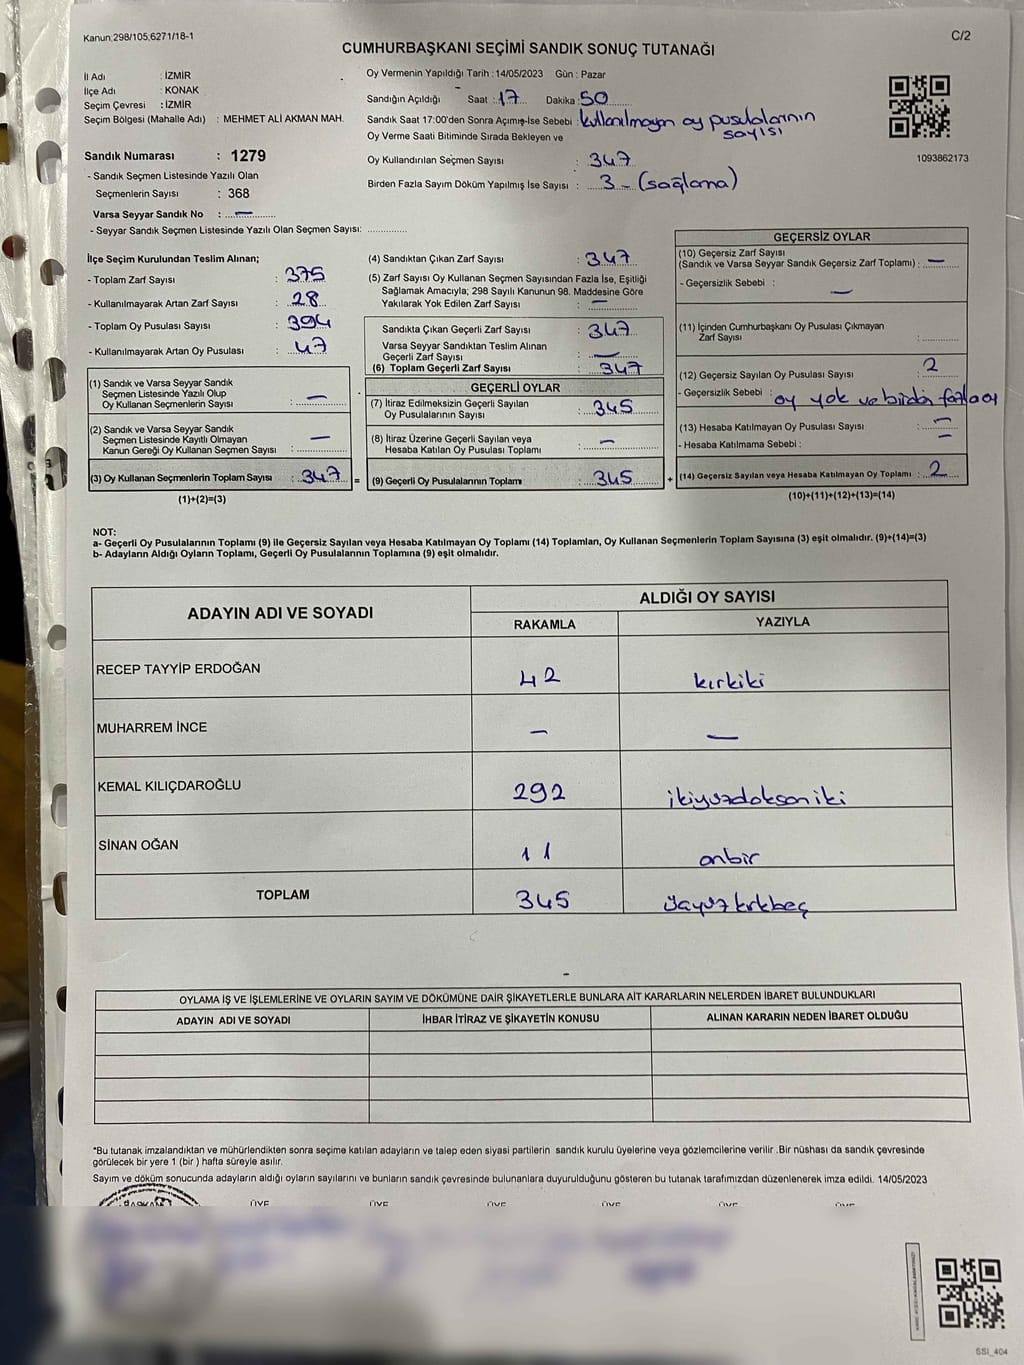 Kanun:298/105,6271/18-1
C/2
CUMHURBAŞKANI SEÇİMİ SANDIK SONUÇ TUTANAĞI
İl Adı : İZMİR
İlçe Adı : KONAK
Seçim Çevresi : İZMİR
Seçim Bölgesi (Mahalle Adı) : MEHMET ALİ AKMAN MAH.
Oy Vermenin Yapıldığı Tarih : 14/05/2023 Gün : Pazar
Sandığın Açıldığı Saat : 17 Dakika : 50
Sandık Saat 17:00'den Sonra Açımış-İse Sebebi : kullanılmayan oy pusulalarının sayısı
Oy Verme Saati Bitiminde Sırada Bekleyen ve
Oy Kullandırılan Seçmen Sayısı : 347
Birden Fazla Sayım Döküm Yapılmış İse Sayısı : 3 - (sağlama)
1093862173
Sandık Numarası : 1279
- Sandık Seçmen Listesinde Yazılı Olan
Seçmenlerin Sayısı : 368
Varsa Seyyar Sandık No : —
- Seyyar Sandık Seçmen Listesinde Yazılı Olan Seçmen Sayısı:
İlçe Seçim Kurulundan Teslim Alınan;
- Toplam Zarf Sayısı : 375
- Kullanılmayarak Artan Zarf Sayısı : 28
- Toplam Oy Pusulası Sayısı : 394
- Kullanılmayarak Artan Oy Pusulası : 47
(1) Sandık ve Varsa Seyyar Sandık
Seçmen Listesinde Yazılı Olup
Oy Kullanan Seçmenlerin Sayısı : —
(2) Sandık ve Varsa Seyyar Sandık
Seçmen Listesinde Kayıtlı Olmayan
Kanun Gereği Oy Kullanan Seçmen Sayısı : —
(3) Oy Kullanan Seçmenlerin Toplam Sayısı : 347 =
(1)+(2)=(3)
(4) Sandıktan Çıkan Zarf Sayısı : 347
(5) Zarf Sayısı Oy Kullanan Seçmen Sayısından Fazla İse, Eşitliği
Sağlamak Amacıyla; 298 Sayılı Kanunun 98. Maddesine Göre
Yakılarak Yok Edilen Zarf Sayısı : —
Sandıkta Çıkan Geçerli Zarf Sayısı : 347
Varsa Seyyar Sandıktan Teslim Alınan
Geçerli Zarf Sayısı : —
(6) Toplam Geçerli Zarf Sayısı : 347
GEÇERLİ OYLAR
(7) İtiraz Edilmeksizin Geçerli Sayılan
Oy Pusulalarının Sayısı : 345
(8) İtiraz Üzerine Geçerli Sayılan veya
Hesaba Katılan Oy Pusulası Toplamı : —
(9) Geçerli Oy Pusulalarının Toplamı : 345 +
GEÇERSİZ OYLAR
(10) Geçersiz Zarf Sayısı
(Sandık ve Varsa Seyyar Sandık Geçersiz Zarf Toplamı) : —
- Geçersizlik Sebebi : —
(11) İçinden Cumhurbaşkanı Oy Pusulası Çıkmayan
Zarf Sayısı :
(12) Geçersiz Sayılan Oy Pusulası Sayısı : 2
- Geçersizlik Sebebi : oy yok ve birden fazla oy
(13) Hesaba Katılmayan Oy Pusulası Sayısı : —
- Hesaba Katılmama Sebebi : —
(14) Geçersiz Sayılan veya Hesaba Katılmayan Oy Toplamı : 2
(10)+(11)+(12)+(13)=(14)
NOT:
a- Geçerli Oy Pusulalarının Toplamı (9) ile Geçersiz Sayılan veya Hesaba Katılmayan Oy Toplamı (14) Toplamları, Oy Kullanan Seçmenlerin Toplam Sayısına (3) eşit olmalıdır. (9)+(14)=(3)
b- Adayların Aldığı Oyların Toplamı, Geçerli Oy Pusulalarının Toplamına (9) eşit olmalıdır.
ADAYIN ADI VE SOYADI
ALDIĞI OY SAYISI
RAKAMLA YAZIYLA
RECEP TAYYİP ERDOĞAN 42 kırkiki
MUHARREM İNCE — —
KEMAL KILIÇDAROĞLU 292 ikiyüzdoksaniki
SİNAN OĞAN 11 onbir
TOPLAM 345 üçyüzkırkbeş
OYLAMA İŞ VE İŞLEMLERİNE VE OYLARIN SAYIM VE DÖKÜMÜNE DAİR ŞİKAYETLERLE BUNLARA AİT KARARLARIN NELERDEN İBARET BULUNDUKLARI
ADAYIN ADI VE SOYADI İHBAR İTİRAZ VE ŞİKAYETİN KONUSU ALINAN KARARIN NEDEN İBARET OLDUĞU
*Bu tutanak imzalandıktan ve mühürlendikten sonra seçime katılan adayların ve talep eden siyasi partilerin sandık kurulu üyelerine veya gözlemcilerine verilir .Bir nüshası da sandık çevresinde
görülecek bir yere 1 (bir ) hafta süreyle asılır.
Sayım ve döküm sonucunda adayların aldığı oyların sayılarını ve bunların sandık çevresinde bulunanlara duyurulduğunu gösteren bu tutanak tarafımızdan düzenlenerek imza edildi. 14/05/2023
BAŞKAN ÜYE ÜYE ÜYE ÜYE ÜYE ÜYE
SSI_404